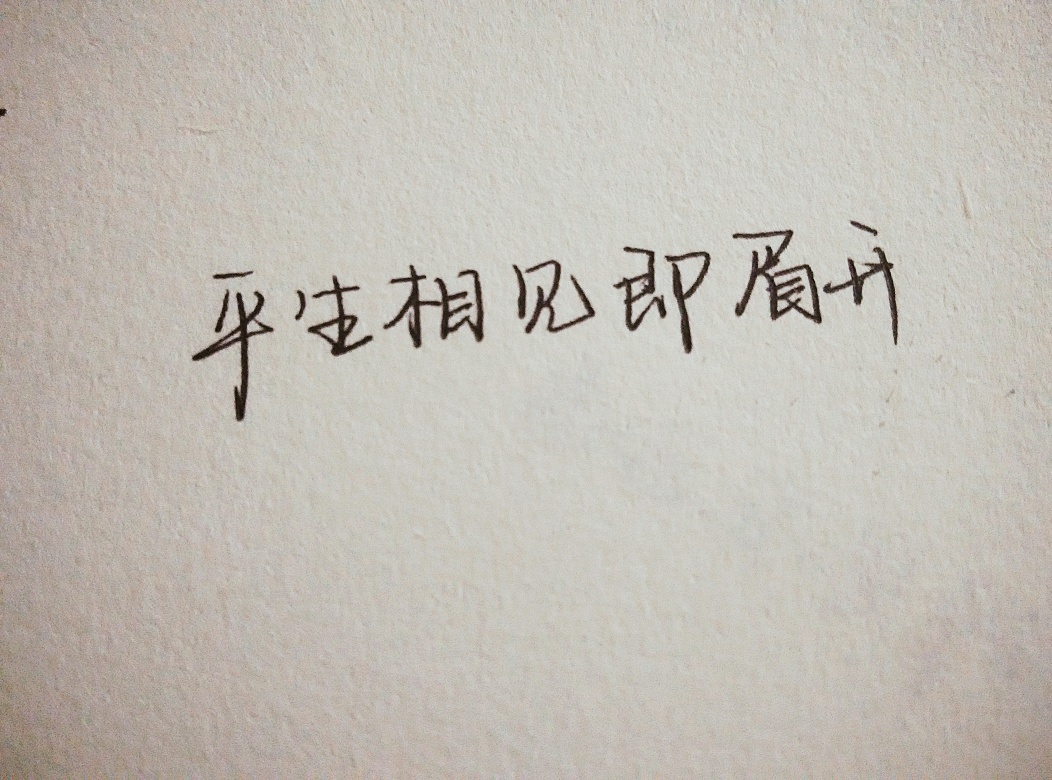 平生相见即眉开